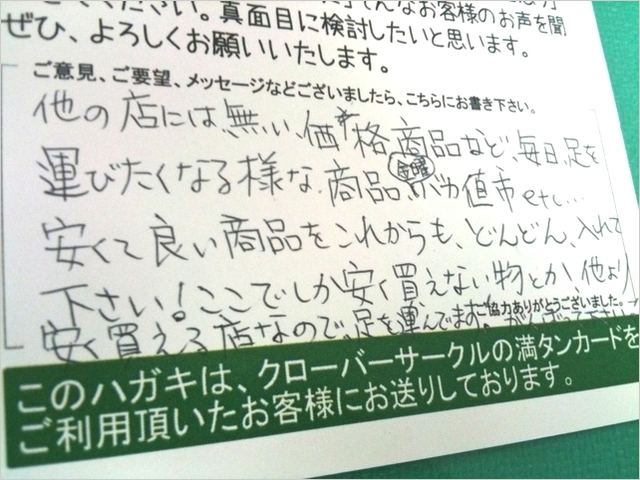 そんなお客様のお声を聞
ぜひ、よろしくお願いいたします。真面目に検討したいと思います。
ご意見、ご要望、メッセージなどございましたら、こちらにお書き下さい。
他の店には無い、価格、商品など、毎日、足を
運びたくなる様な、商品、バカ値市etc…
金曜
安くて良い商品をこれからも、どんどん、入れて
下さい!ここでしか安く買えない物とか他より
ご協力ありがとうございました。
安く買える店なので、足を運んでます。がんばって下さい
このハガキは、クローバーサークルの満タンカードを
ご利用頂いたお客様にお送りしております。